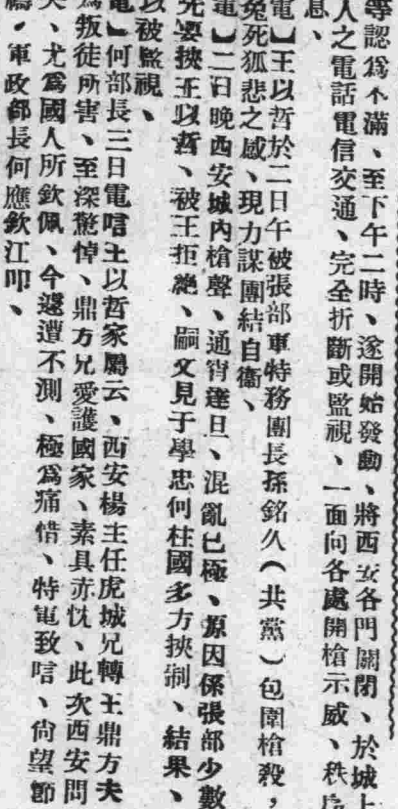 等認爲不滿、至下午二時、遂開始發動、將西安各門關閉、於城上
人之電話電信交通、完全折斷或監視、一面向各處開槍示威、秩序
息、
電】王以哲於二日午被張部軍特務團長孫銘久(共黨)包圍槍殺,
兔死狐悲之感、現力謀團結自衞、
電】二日晚西安城內槍聲、通宵達旦、混亂已極、原因係張部少數
先要挾王以哲、被王拒絕、嗣又見于學忠何柱國多方挾制、結果、
以被監視、
電】何部長三日電唁王以哲家屬云、西安楊主任虎城兄轉王鼎方夫
爲叛徒所害、至深驚悼、鼎方兄愛護國家、素具赤忱、此次西安問
尤爲國人所欽佩、今遽遭不測、極爲痛惜、特電致唁、尙望節
禱・軍政部長何應欽江叩、